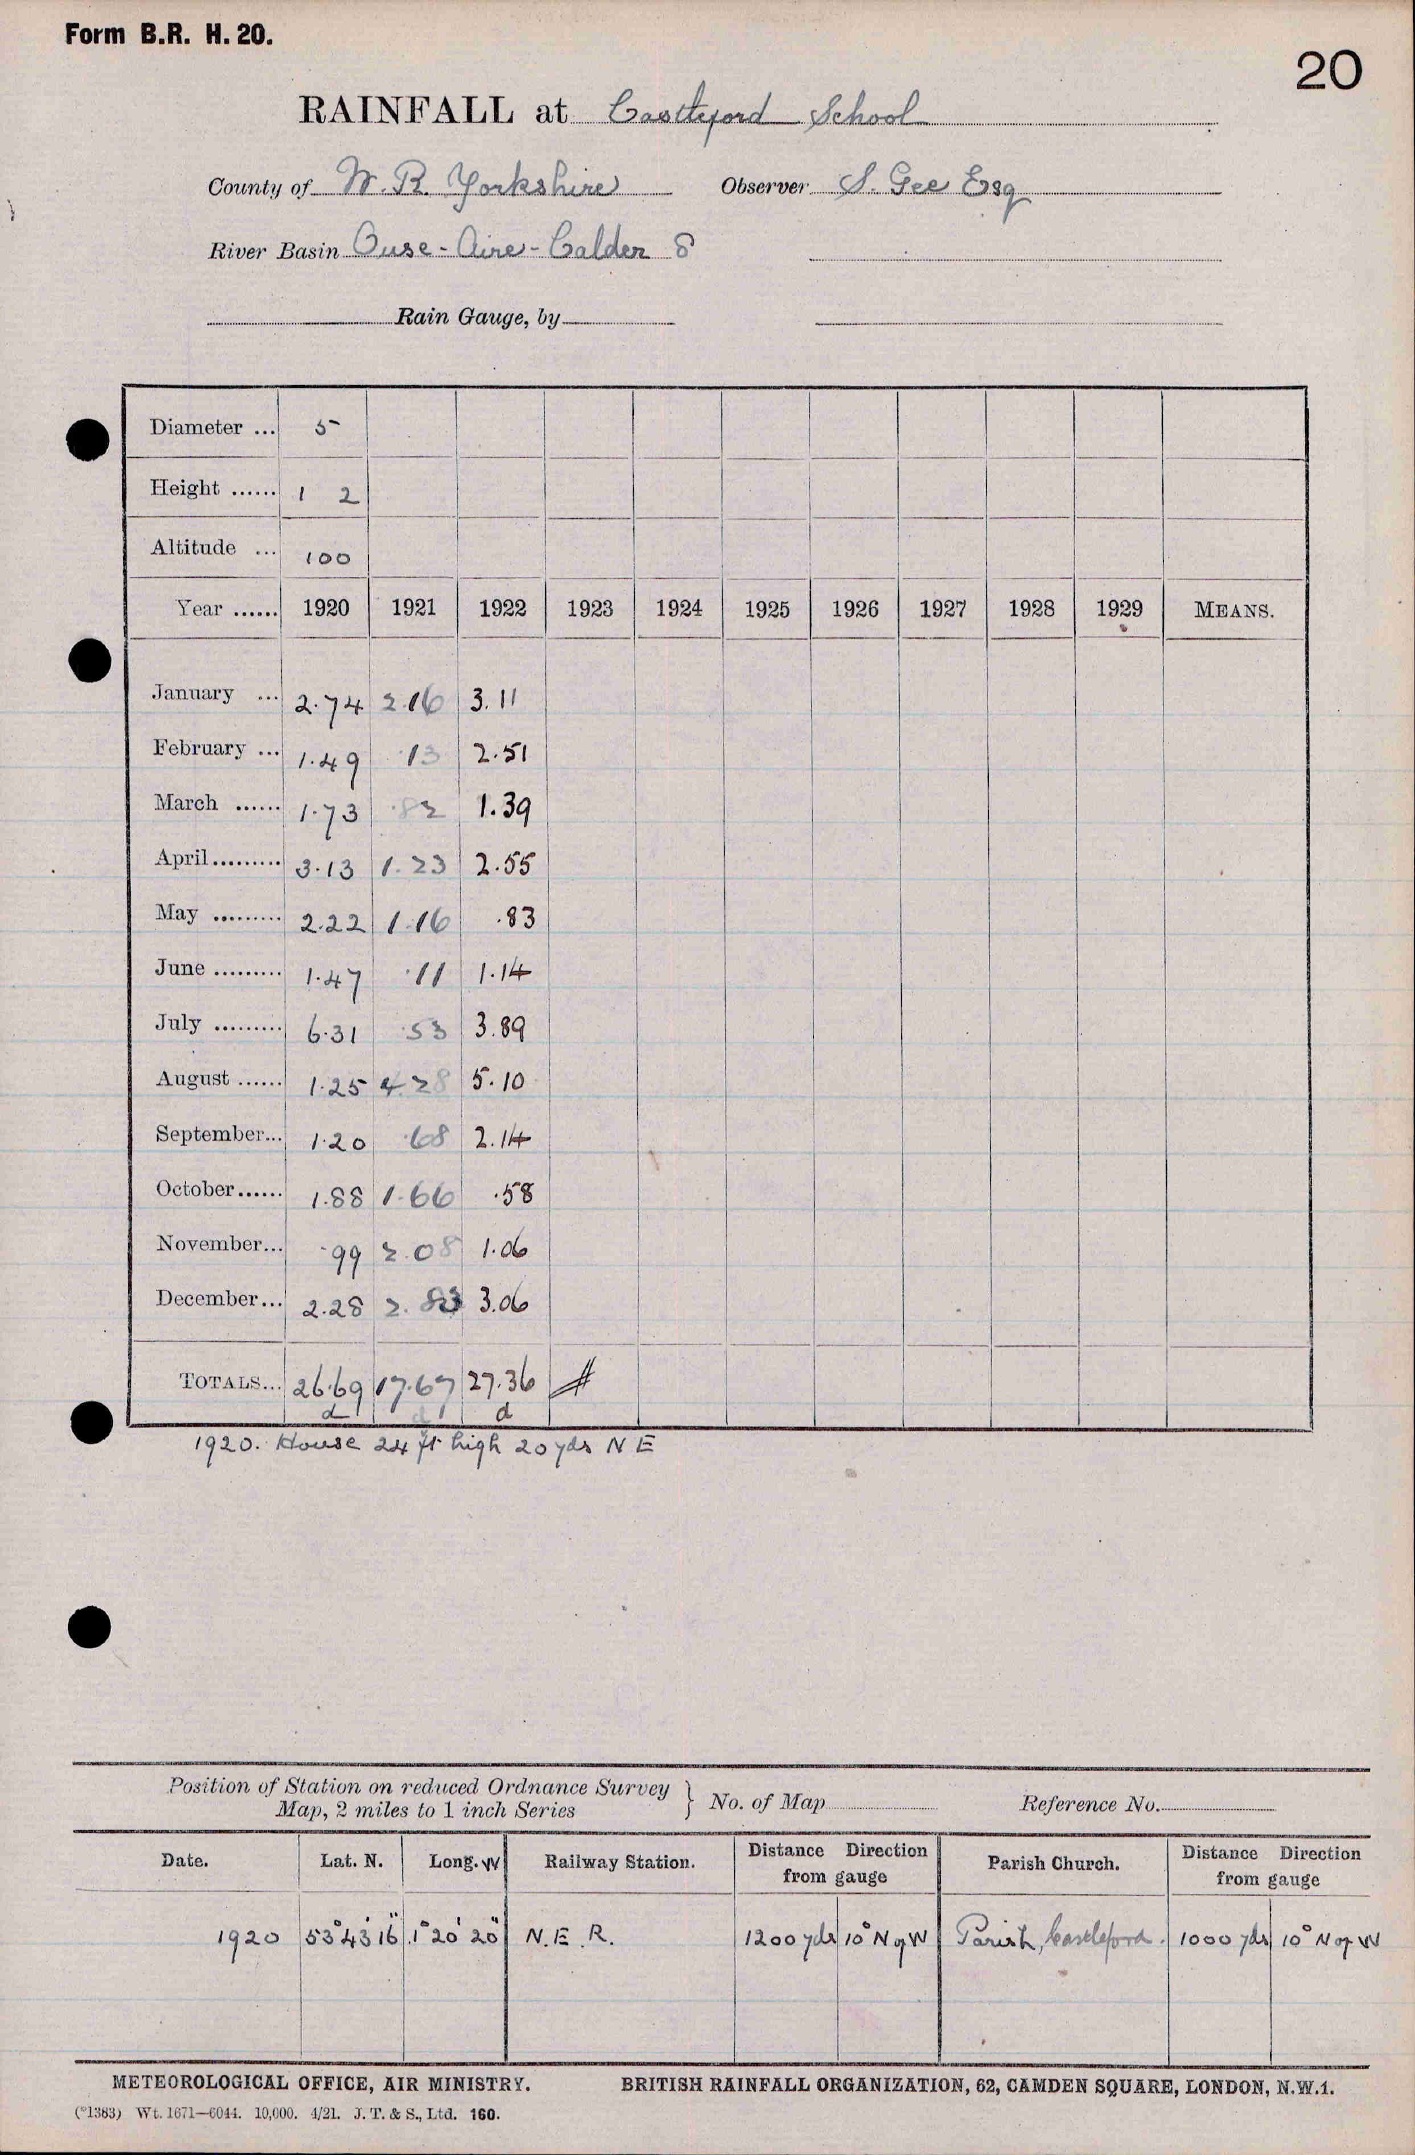 Form B.R. H. 20.
20
RAINFALL at Castleford School
County of W. R. Yorkshire Observer S. Gee Esq
River Basin Ouse - Aire - Calder 8
Rain Gauge, by
Diameter ... 5
Height ...... 1 2
Altitude ... 100
Year ...... 1920 1921 1922 1923 1924 1925 1926 1927 1928 1929 MEANS.
January ... 2.74 2.16 3.11
February ... 1.49 .13 2.51
March ...... 1.73 .82 1.39
April ......... 3.13 1.23 2.55
May ......... 2.22 1.16 .83
June ......... 1.47 .11 1.14
July ......... 6.31 .53 3.89
August ...... 1.25 4.28 5.10
September... 1.20 .68 2.14
October...... 1.88 1.66 .58
November... .99 2.08 1.06
December... 2.28 2.83 3.06
TOTALS... 26.69 17.67 27.36
d d d
1920. House 24 ft high 20 yds N E
Position of Station on reduced Ordnance Survey
Map, 2 miles to 1 inch Series } No. of Map Reference No.
Date. Lat. N. Long. W Railway Station. Distance Direction from gauge Parish Church. Distance Direction from gauge
1920 53° 43' 16" 1° 20' 20" N. E. R. 1200 yds 10° N of W Parish, Castleford. 1000 yds 10° N of W
METEOROLOGICAL OFFICE, AIR MINISTRY. BRITISH RAINFALL ORGANIZATION, 62, CAMDEN SQUARE, LONDON, N.W.1.
(*1383) Wt. 1671—6044. 10,000. 4/21. J. T. & S., Ltd. 160.